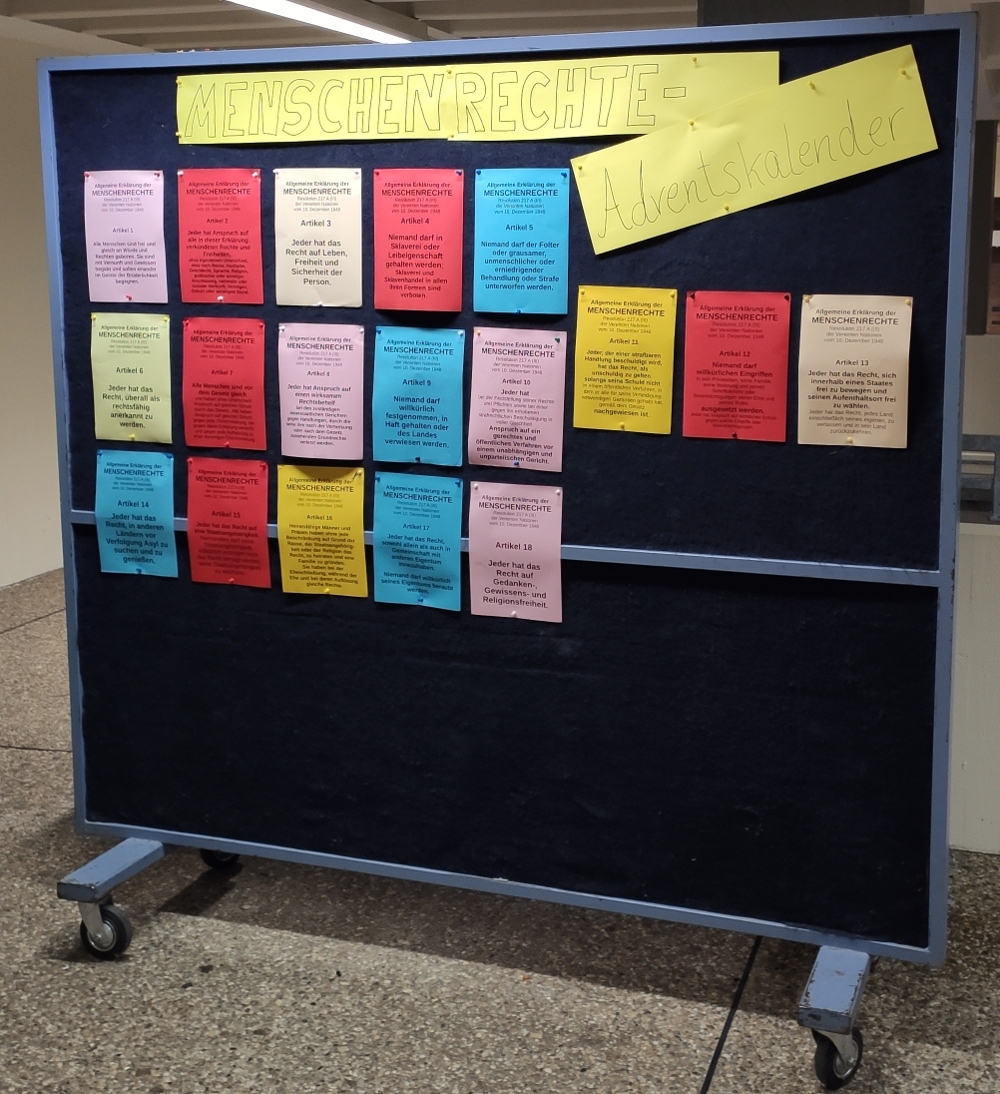 MENSCHENRECHTE-
Adventskalender
Allgemeine Erklärung der
MENSCHENRECHTE
Resolution 217 A (III)
der Vereinten Nationen
vom 10. Dezember 1948
Artikel 1
Alle Menschen sind frei und
gleich an Würde und
Rechten geboren. Sie sind
mit Vernunft und Gewissen
begabt und sollen einander
im Geiste der Brüderlichkeit
begegnen.
Allgemeine Erklärung der
MENSCHENRECHTE
Resolution 217 A (III)
der Vereinten Nationen
vom 10. Dezember 1948
Artikel 2
Jeder hat Anspruch auf
alle in dieser Erklärung
verkündeten Rechte und
Freiheiten,
Allgemeine Erklärung der
MENSCHENRECHTE
Resolution 217 A (III)
der Vereinten Nationen
vom 10. Dezember 1948
Artikel 3
Jeder hat das
Recht auf Leben,
Freiheit und
Sicherheit der
Person.
Allgemeine Erklärung der
MENSCHENRECHTE
Resolution 217 A (III)
der Vereinten Nationen
vom 10. Dezember 1948
Artikel 4
Niemand darf in
Sklaverei oder
Leibeigenschaft
gehalten werden;
Sklaverei und
Sklavenhandel in allen
ihren Formen sind
verboten.
Allgemeine Erklärung der
MENSCHENRECHTE
Resolution 217 A (III)
der Vereinten Nationen
vom 10. Dezember 1948
Artikel 5
Niemand darf der Folter
oder grausamer,
unmenschlicher oder
erniedrigender
Behandlung oder Strafe
unterworfen werden.
Allgemeine Erklärung der
MENSCHENRECHTE
Resolution 217 A (III)
der Vereinten Nationen
vom 10. Dezember 1948
Artikel 6
Jeder hat das
Recht, überall als
rechtsfähig
anerkannt zu
werden.
Allgemeine Erklärung der
MENSCHENRECHTE
Resolution 217 A (III)
der Vereinten Nationen
vom 10. Dezember 1948
Artikel 7
Alle Menschen sind vor
dem Gesetz gleich
Allgemeine Erklärung der
MENSCHENRECHTE
Resolution 217 A (III)
der Vereinten Nationen
vom 10. Dezember 1948
Artikel 8
Jeder hat Anspruch auf
einen wirksamen
Rechtsbehelf
Allgemeine Erklärung der
MENSCHENRECHTE
Resolution 217 A (III)
der Vereinten Nationen
vom 10. Dezember 1948
Artikel 9
Niemand darf
willkürlich
festgenommen, in
Haft gehalten oder
des Landes
verwiesen werden.
Allgemeine Erklärung der
MENSCHENRECHTE
Resolution 217 A (III)
der Vereinten Nationen
vom 10. Dezember 1948
Artikel 10
Jeder hat
Anspruch auf ein
gerechtes und
öffentliches Verfahren vor
einem unabhängigen und
unparteiischen Gericht.
Allgemeine Erklärung der
MENSCHENRECHTE
Resolution 217 A (III)
der Vereinten Nationen
vom 10. Dezember 1948
Artikel 11
Jeder, der einer strafbaren
Handlung beschuldigt wird,
hat das Recht, als
unschuldig zu gelten,
solange seine Schuld nicht
nachgewiesen ist.
Allgemeine Erklärung der
MENSCHENRECHTE
Resolution 217 A (III)
der Vereinten Nationen
vom 10. Dezember 1948
Artikel 12
Niemand darf
willkürlichen Eingriffen
ausgesetzt werden.
Allgemeine Erklärung der
MENSCHENRECHTE
Resolution 217 A (III)
der Vereinten Nationen
vom 10. Dezember 1948
Artikel 13
Jeder hat das Recht, sich
innerhalb eines Staates
frei zu bewegen und
seinen Aufenthaltsort frei
zu wählen.
Jeder hat das Recht, jedes Land,
einschließlich seines eigenen, zu
verlassen und in sein Land
zurückzukehren.
Allgemeine Erklärung der
MENSCHENRECHTE
Resolution 217 A (III)
der Vereinten Nationen
vom 10. Dezember 1948
Artikel 14
Jeder hat das
Recht, in anderen
Ländern vor
Verfolgung Asyl zu
suchen und zu
genießen.
Allgemeine Erklärung der
MENSCHENRECHTE
Resolution 217 A (III)
der Vereinten Nationen
vom 10. Dezember 1948
Artikel 15
Jeder hat das Recht auf
eine Staatsangehörigkeit.
Allgemeine Erklärung der
MENSCHENRECHTE
Resolution 217 A (III)
der Vereinten Nationen
vom 10. Dezember 1948
Artikel 16
Heiratsfähige Männer und
Frauen haben ohne jede
Beschränkung auf Grund der
Rasse, der Staatsangehörig-
keit oder der Religion das
Recht, zu heiraten und eine
Familie zu gründen.
Sie haben bei der
Eheschließung, während der
Ehe und bei deren Auflösung
gleiche Rechte.
Allgemeine Erklärung der
MENSCHENRECHTE
Resolution 217 A (III)
der Vereinten Nationen
vom 10. Dezember 1948
Artikel 17
Jeder hat das Recht,
sowohl allein als auch in
Gemeinschaft mit
anderen Eigentum
innezuhaben.
Niemand darf willkürlich
seines Eigentums beraubt
werden.
Allgemeine Erklärung der
MENSCHENRECHTE
Resolution 217 A (III)
der Vereinten Nationen
vom 10. Dezember 1948
Artikel 18
Jeder hat das
Recht auf
Gedanken-,
Gewissens- und
Religionsfreiheit.